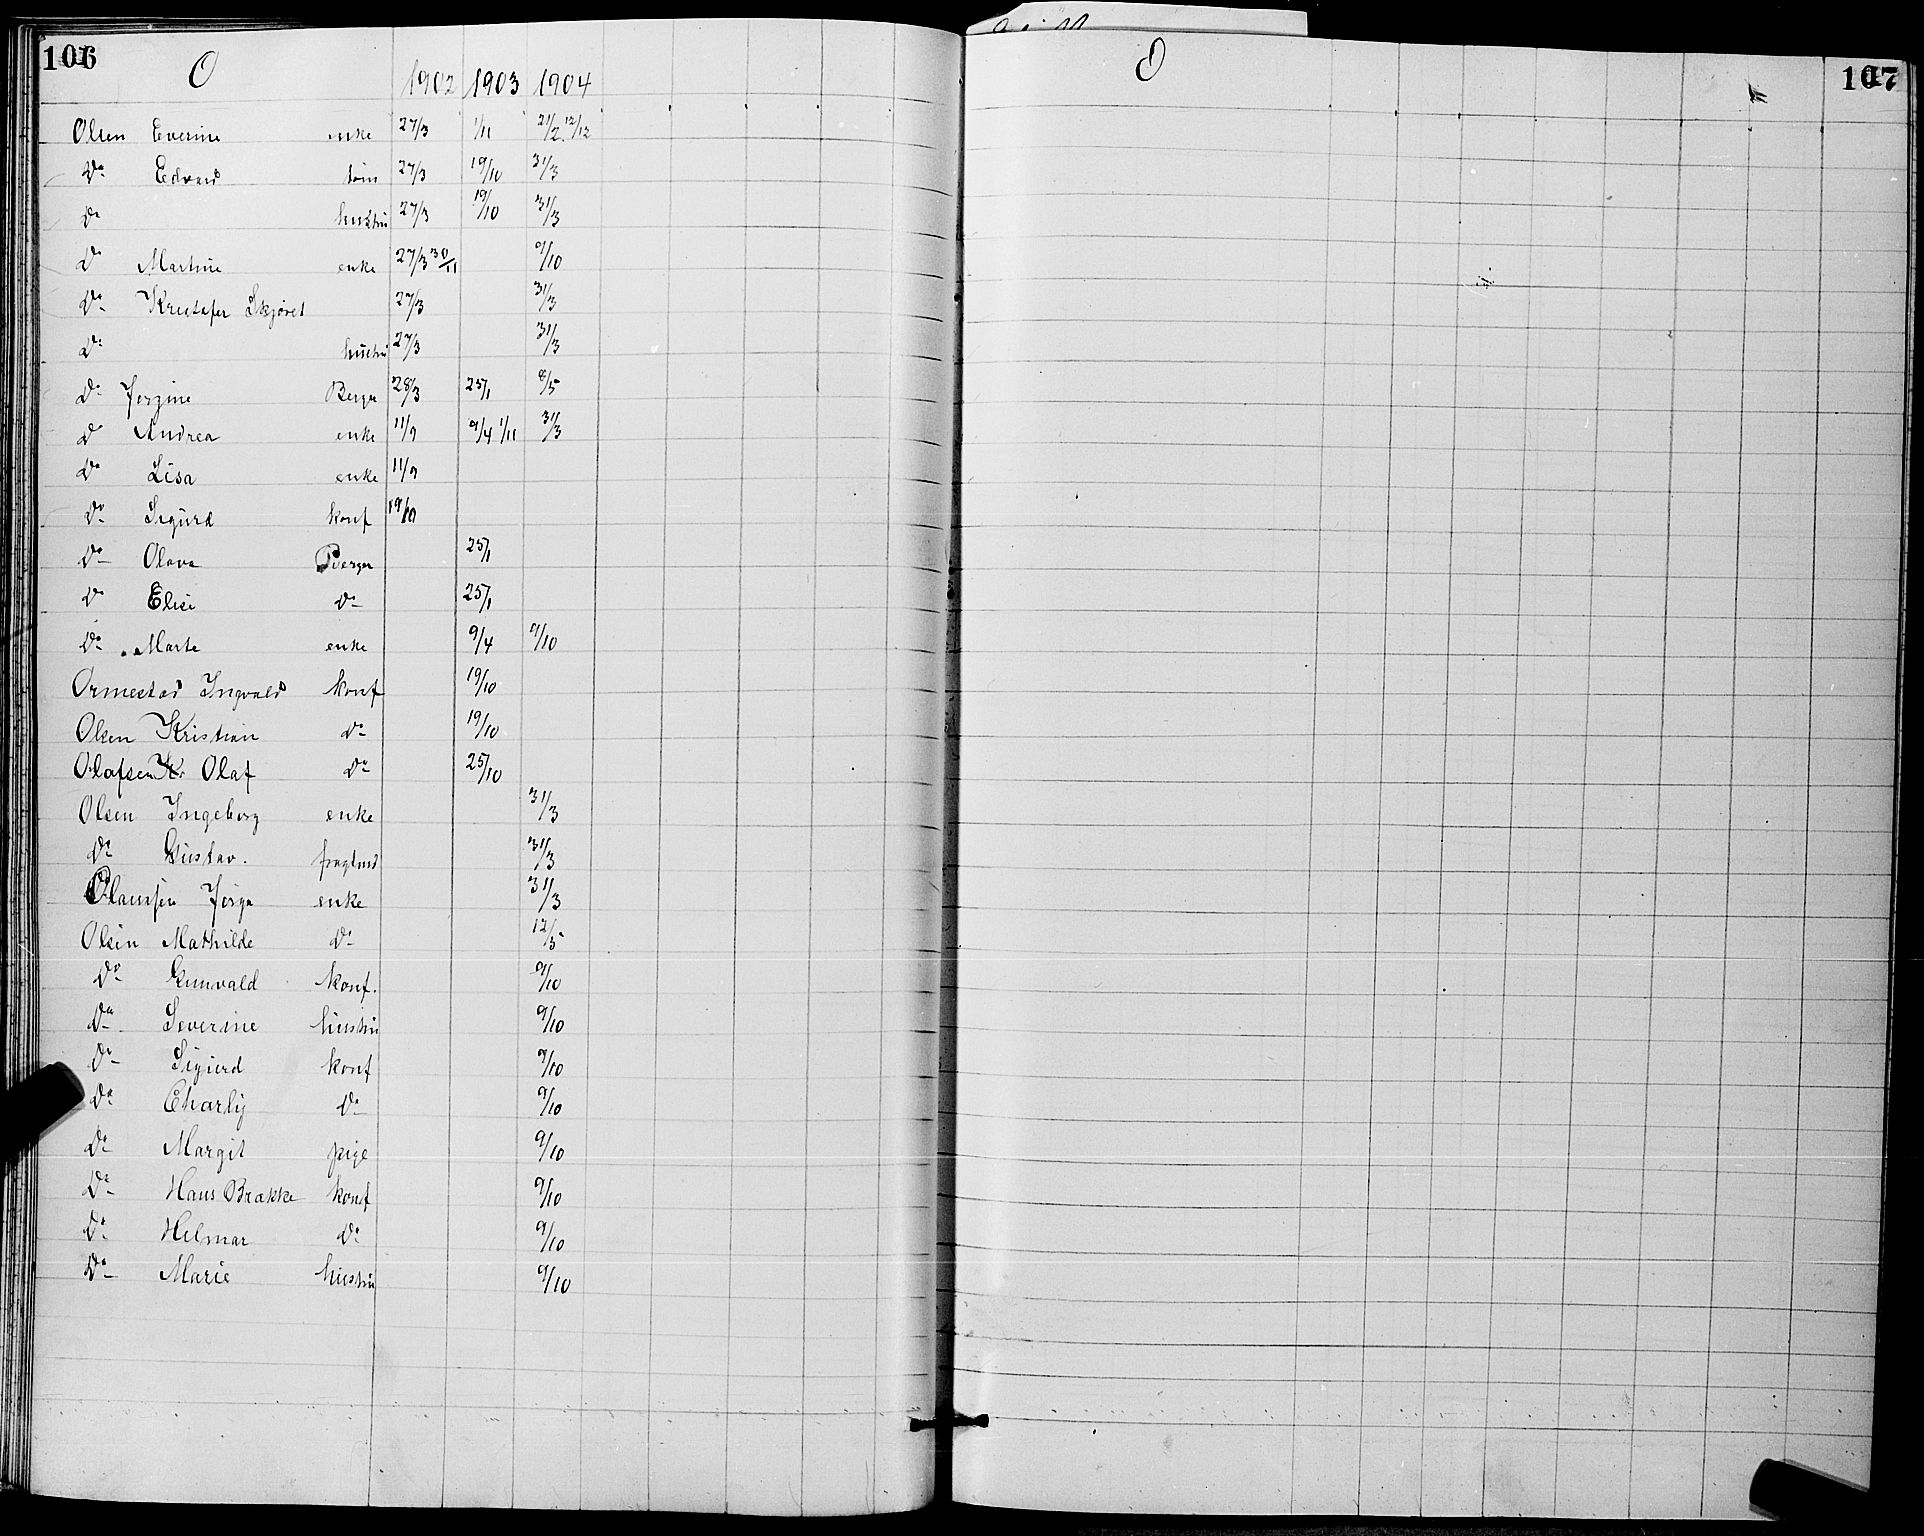 106
O
1902 1903 1904
Olsen Everine enke 27/3 1/11 21/2. 12/12
Do Edvard tøm 27/3 19/10 31/3
Do hustru 27/3 19/10 31/3
Do Martine enke 27/3 30/11 9/10
Do Kristofer Skjøret 27/3 31/3
Do hustru 27/3 31/3
Do Jorgine Berger 28/3 25/1 8/5
Do Andrea enke 11/9 9/4 1/11 31/3
Do Lisa enke 11/9
Do Sigurd konf 19/10
Do Olava Berger 25/1
Do Elise Do 25/1
Do Marte enke 9/4 9/10
Ormestad Ingvald konf 19/10
Olsen Kristian Do 19/10
Olafsen Kr. Olaf Do 25/10
Olsen Ingeborg enke 31/3
Do Gustav. 31/3
Olaussen Jørga enke 31/3
Olsen Mathilde Do 12/5
Do Gunvald konf. 9/10
Do Severine hustru 9/10
Do Sigurd konf 9/10
Do Charly Do 9/10
Do Margit pige 9/10
Do Hans Brække konf 9/10
Do Hilmar Do 9/10
Do Marie hustru 9/10
O
107